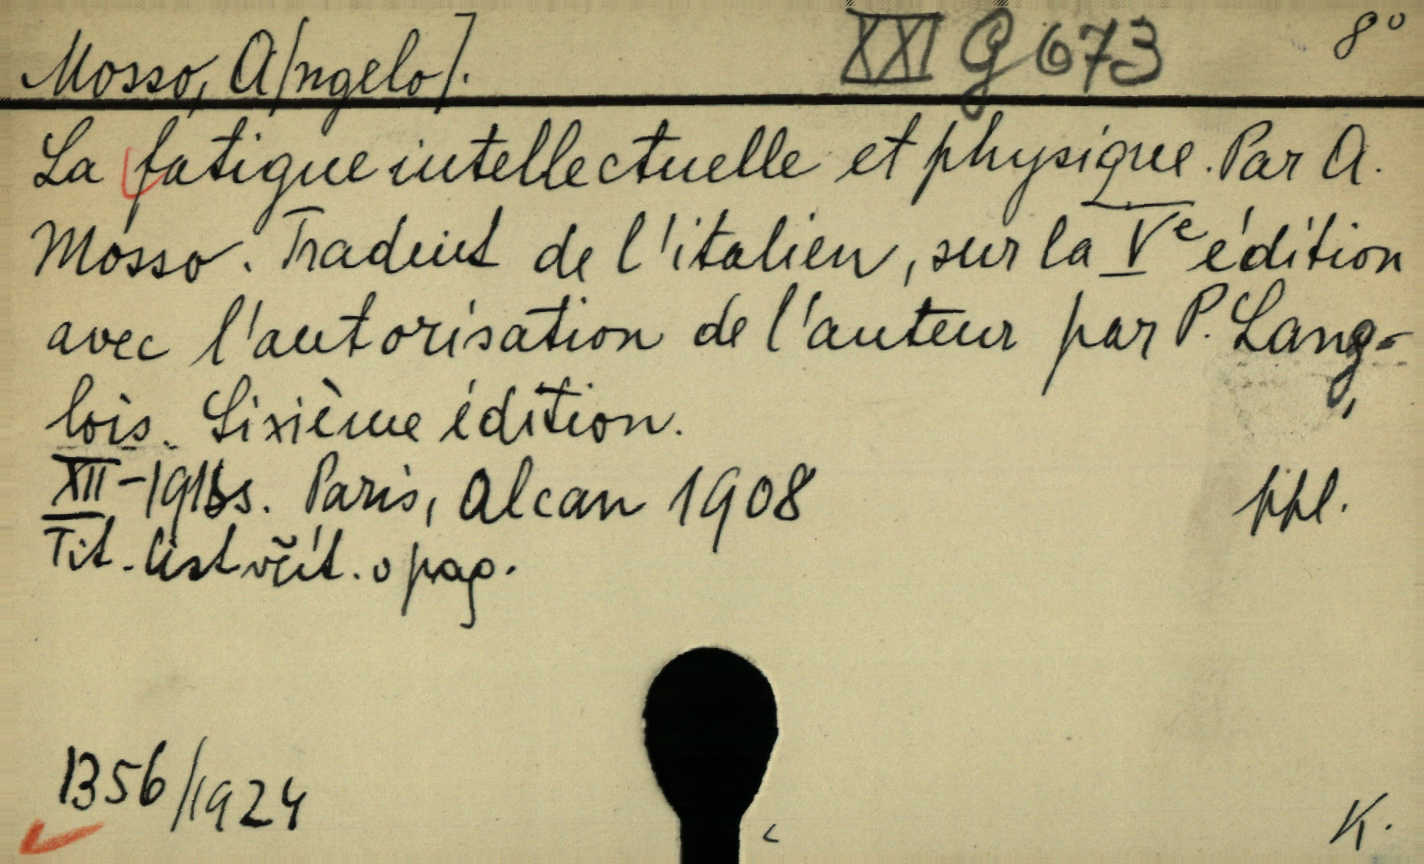 Mosso, A[ngelo]. XXI G 673 8°
La fatigue intellectuelle et physique. Par A.
Mosso. Traduit de l'italien, sur la Ve édition
avec l'autorisation de l'auteur par P. Lang-
lois. Sixième édition.
XII - s. Paris, Alcan 1908 ppl.
Tit. list včít. v pag.
1356/1924
K.